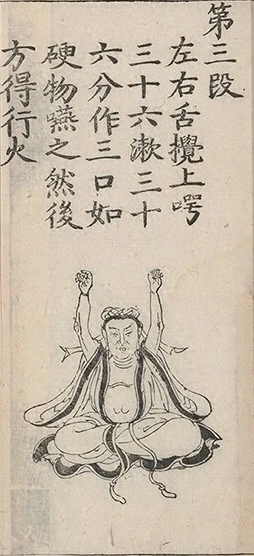 第三段
左右舌攪上咢
三十六漱三十
六分作三口如
硬物嚥之然後
方得行火